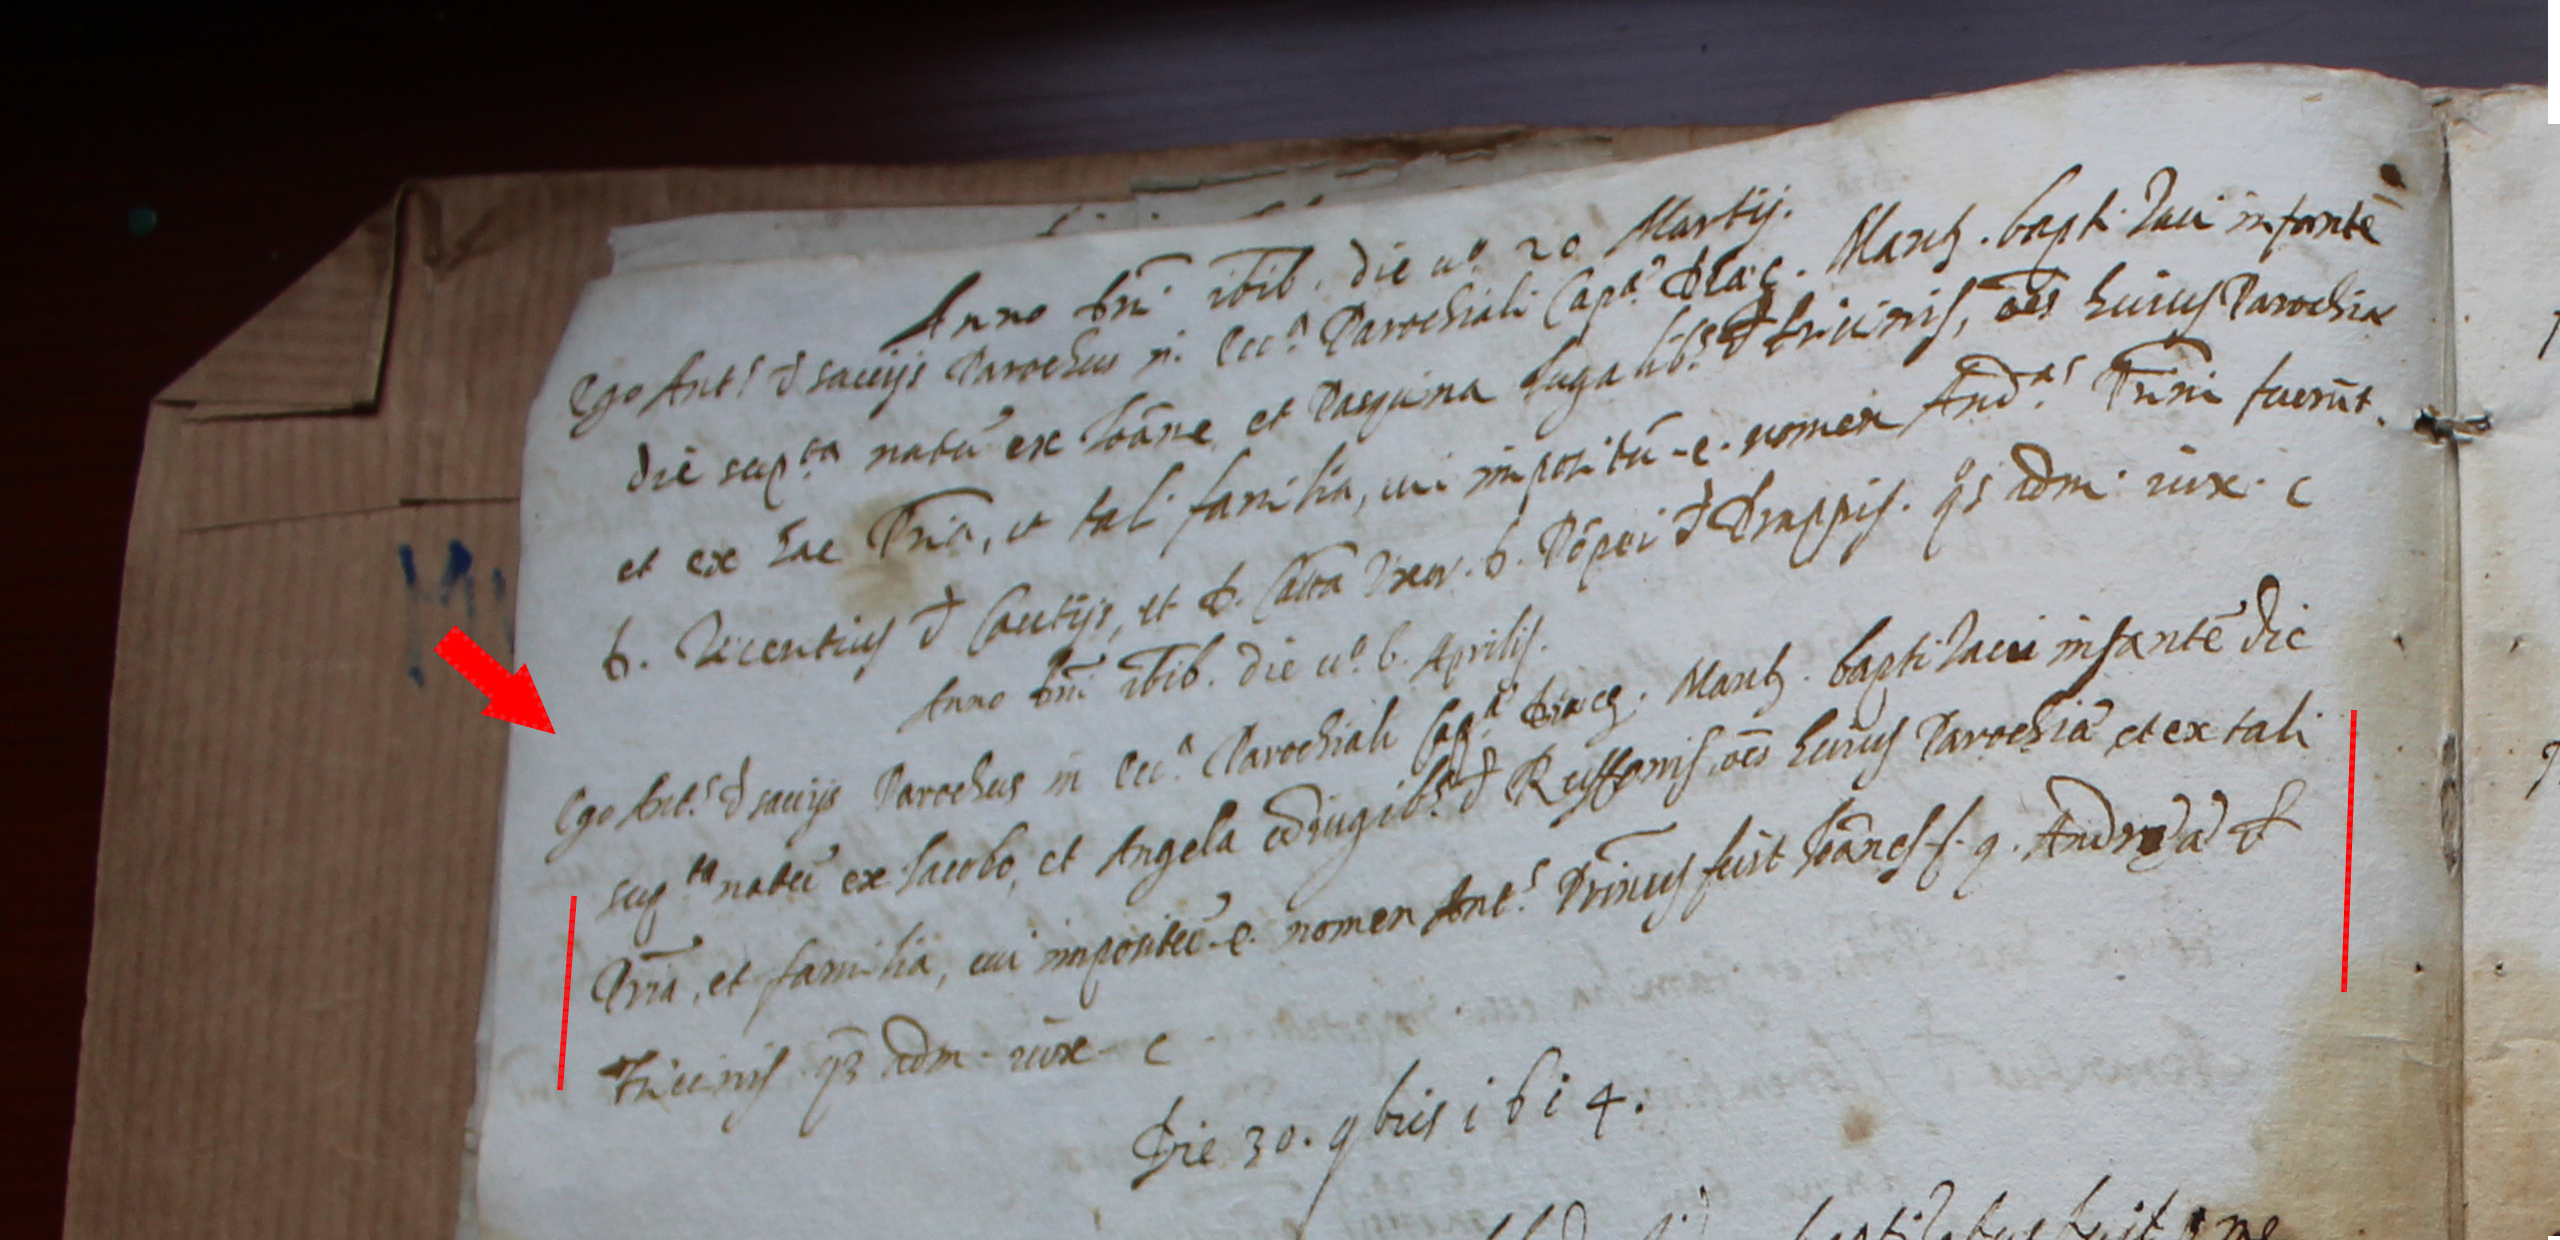 Anno Dni 1616. die u.º 20 Martij.
Ego Ant.s d Sauijs Parochus in Ecc.a Parochiali Cap.a Mant. baptizaui infantē
die sup.ta natū ex Ioāne et Pasquina Iugalib.s d Friuinis, oēs huius Parochia
et ex hac Pria, et tali familia, cui impositū e. nomen And.as Prini fuerūt.
D. Vicentius d Cautijs, et D. Catta Vxor. D. Pōpei d Drappis. qs adm. iux. c
Anno Dni 1616. die u.º 6. Aprilis.
Ego Ant.s d Sauijs Parochus in Ecc.a Parochiali Cap.a Mant. baptizaui infantē die
sup.ta natū ex Iacobo, et Angela cōiugib.s d Ruffonis, oēs huius Parochia et ex tali
Pria, et familia, cui impositū e. nomen Ant.s Prinus fuit Ioānes f. q. Andrea d
Friuinis qs adm. iux. c
Die 30. 9bris i6i4.
baptizatus fuit a me